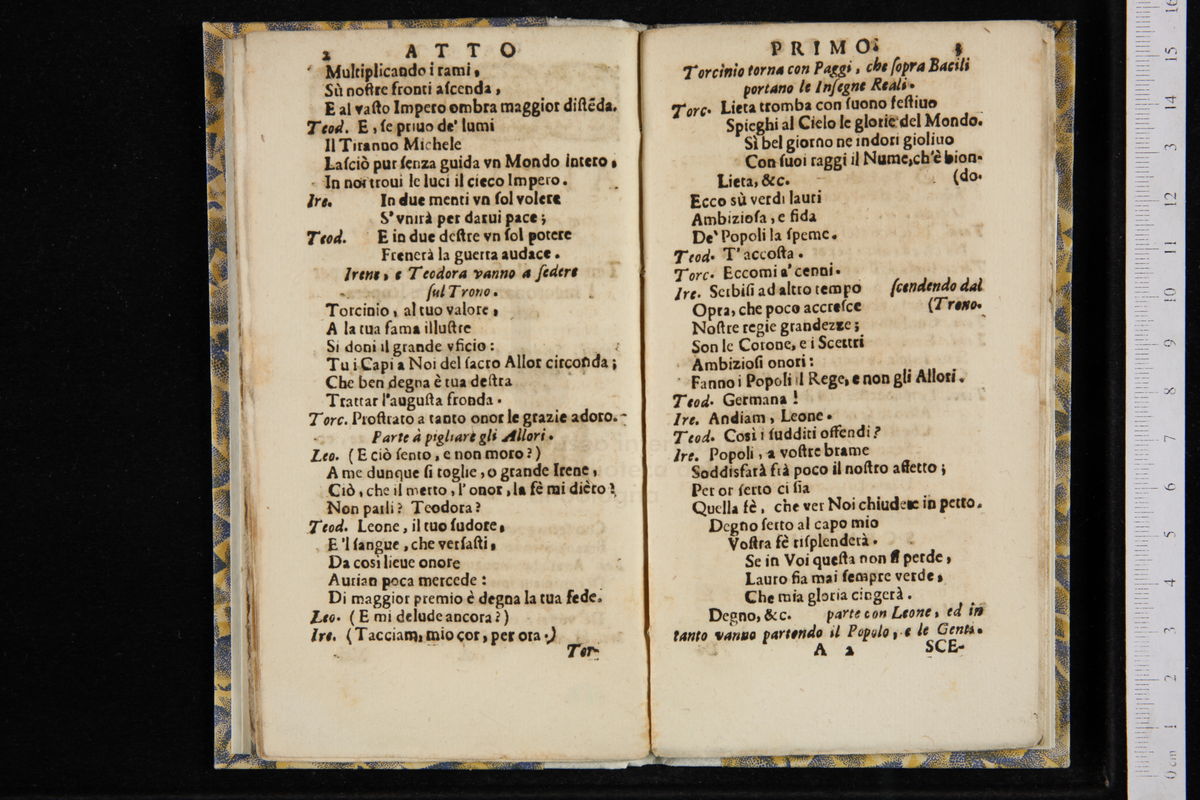 2 ATTO
Multiplicando i rami,
Sù noſtre fronti aſcenda,
E al vaſto Impero ombra maggior diſtēda.
Teod. E, ſe priuo de' lumi
Il Tiranno Michele
Laſciò pur ſenza guida vn Mondo intero,
In noi troui le luci il cieco Impero.
Ire. In due menti vn ſol volere
S'vnirà per darui pace;
Teod. E in due deſtre vn ſol potere
Frenerà la guerra audace.
Irene, e Teodora vanno a ſedere
ſul Trono.
Torcinio, al tuo valore,
A la tua fama illuſtre
Si doni il grande vficio:
Tu i Capi a Noi del ſacro Allor circonda;
Che ben degna è tua deſtra
Trattar l'auguſta fronda.
Torc. Proſtrato a tanto onor le grazie adoro.
Parte à pigliare gli Allori.
Leo. (E ciò ſento, e non moro?)
A me dunque ſi toglie, o grande Irene,
Ciò, che il merto, l'onor, la fè mi diero?
Non parli? Teodora?
Teod. Leone, il tuo ſudore,
E 'l ſangue, che verſaſti,
Da così lieue onore
Aurian poca mercede:
Di maggior premio è degna la tua fede.
Leo. (E mi delude ancora?)
Ire. (Tacciam, mio cor, per ora.)
Tor-
PRIMO. 3
Torcinio torna con Paggi, che ſopra Bacili
portano le Inſegne Reali.
Torc. Lieta tromba con ſuono feſtiuo
Spieghi al Cielo le glorie del Mondo.
Sì bel giorno ne indori gioliuo
Con ſuoi raggi il Nume, ch'è bion-
Lieta, &c. (do.
Ecco sù verdi lauri
Ambizioſa, e fida
De' Popoli la ſpeme.
Teod. T'accoſta.
Torc. Eccomi a' cenni.
Ire. Serbiſi ad altro tempo ſcendendo dal
Opra, che poco accreſce (Trono.
Noſtre regie grandezze;
Son le Corone, e i Scettri
Ambizioſi onori:
Fanno i Popoli il Rege, e non gli Allori.
Teod. Germana!
Ire. Andiam, Leone.
Teod. Così i ſudditi offendi?
Ire. Popoli, a voſtre brame
Soddisfarà frà poco il noſtro affetto;
Per or ſerto ci ſia
Quella fè, che ver Noi chiudete in petto.
Degno ſerto al capo mio
Voſtra fè riſplenderà.
Se in Voi queſta non ſi perde,
Lauro fia mai ſempre verde,
Che mia gloria cingerà.
Degno, &c. parte con Leone, ed in
tanto vanno partendo il Popolo, e le Genti.
A 2 SCE-
0 cm 1 2 3 4 5 6 7 8 9 10 11 12 13 14 15 16